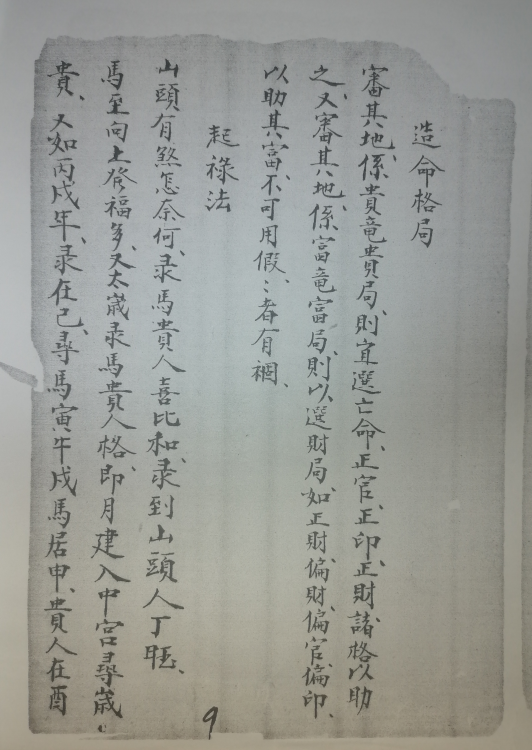 造命格局
審其地、係貴竜貴局、則宜選亡命、正官、正印、正財、諸格以助
之、又審其地、係富竜富局、則以選財局、如正財、偏財、偏官、偏印、
以助其富、不可用假、〻者有禍、
起祿法
山頭有煞怎奈何、彔馬貴人喜比和、彔到山頭人丁旺、
馬至向上發福多、又太歲彔馬貴人格、即月建入中宮尋歲
貴、又如丙戌年、彔在巳、尋馬寅午戌馬居申、貴人在酉
9